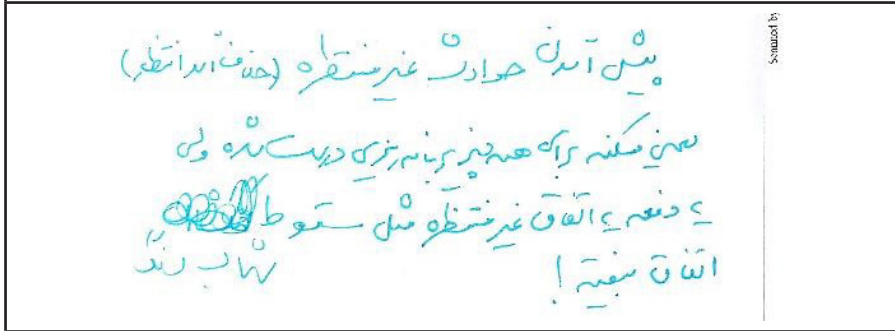 پیش آمدن حوادث غیر منتظره (خلاف انتظار)
یعنی ممکنه برای همه چیز برنامه ریزی درست شده ولی
یه دفعه یه اتفاق غیر منتظره مثل سقوط
اتفاق بیفته !
Scanned by